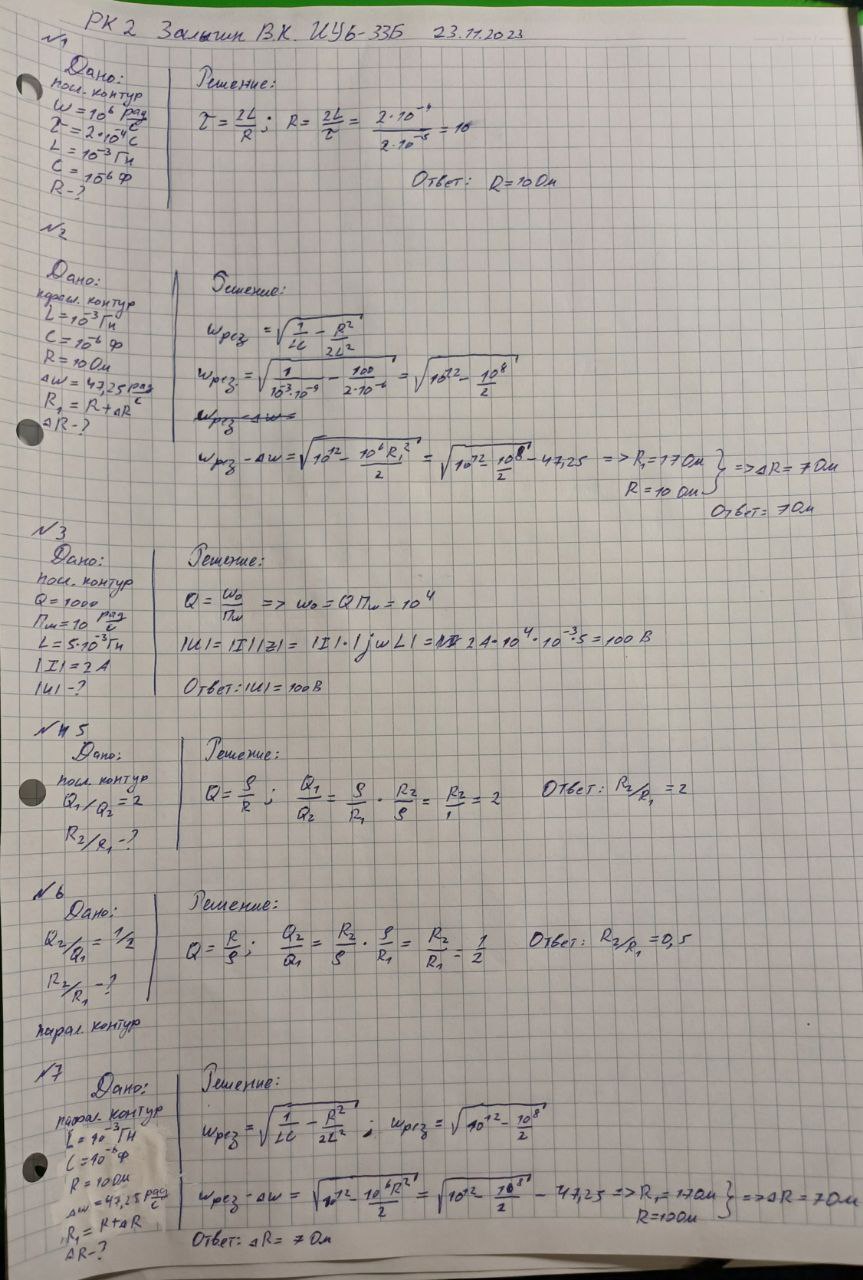 РК 2 Залыгин В.К. ИУ6-33Б 23.11.2023
№1
Дано:
посл. контур
ω = 10⁶ рад/с
τ = 2·10⁻⁴ с
L = 10⁻³ Гн
C = 10⁻⁶ Ф
R - ?
Решение:
τ = 2L/R ; R = 2L/τ = 2·10⁻⁴/2·10⁻⁵ = 10
Ответ: R = 10 Ом
№2
Дано:
парал. контур
L = 10⁻³ Гн
C = 10⁻⁶ Ф
R = 10 Ом
Δω = 47,25 рад/с
R₁ = R + ΔR
ΔR - ?
Решение:
ωрез = √(1/LC - R²/2L²)
ωрез = √(1/10⁻³·10⁻⁹ - 100/2·10⁻⁶) = √(10¹² - 10⁸/2)
ωрез - Δω =
ωрез - Δω = √(10¹² - 10⁶R₁²/2) = √(10¹² - 10⁸/2) - 47,25 => R₁ = 17 Ом } => ΔR = 7 Ом
R = 10 Ом
Ответ = 7 Ом
№3
Дано:
посл. контур
Q = 1000
Пω = 10 рад/с
L = 5·10⁻³ Гн
|I| = 2 А
|U| - ?
Решение:
Q = ω₀/Пω => ω₀ = QПω = 10⁴
|U| = |I||Z| = |I|·|jωL| = 2 А·10⁴·10⁻³·5 = 100 В
Ответ: |U| = 100 В
№5
Дано:
посл. контур
Q₁/Q₂ = 2
R₂/R₁ - ?
Решение:
Q = ρ/R ; Q₁/Q₂ = ρ/R₁ · R₂/ρ = R₂/1 = 2
Ответ: R₂/R₁ = 2
№6
Дано:
Q₂/Q₁ = 1/2
R₂/R₁ - ?
парал. контур
Решение:
Q = R/ρ ; Q₂/Q₁ = R₂/ρ · ρ/R₁ = R₂/R₁ = 1/2
Ответ: R₂/R₁ = 0,5
№7
Дано:
парал. контур
L = 10⁻³ Гн
C = 10⁻⁶ Ф
R = 10 Ом
Δω = 47,25 рад/с
R₁ = R + ΔR
ΔR - ?
Решение:
ωрез = √(1/LC - R²/2L²) ; ωрез = √(10¹² - 10⁸/2)
ωрез - Δω = √(10¹² - 10⁶R²/2) = √(10¹² - 10⁸/2) - 47,25 => R₁ = 17 Ом } => ΔR = 7 Ом
R = 10 Ом
Ответ: ΔR = 7 Ом